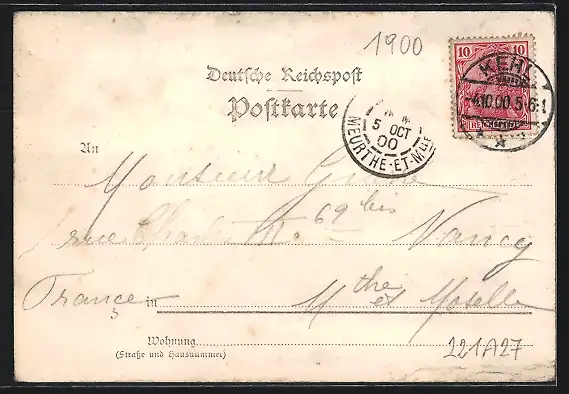 1900
10 10
KEHL
4.10.00.5-6
Deutsche Reichspost
Postkarte
5 OCT
00
MEURTHE-ET-MLLE
An
Monsieur
rue Charles III. 69 bis
Nancy
France in Mthe et Moselle
Wohnung
(Straße und Hausnummer)
221A27